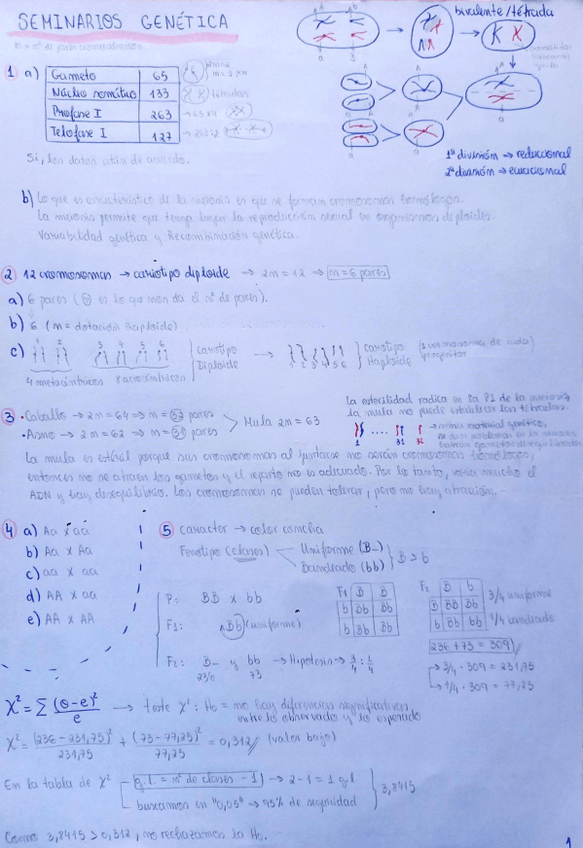 SEMINARIOS GENÉTICA
bivalente/tétrada
1 a)
Gameto 65
Núcleo somático 133
Profase I 263
Telofase I 127
Sí, los datos están de acuerdo.
1ª división → reduccional
2ª división → ecuacional
b) Lo que es característico de la meiosis es que se forman cromosomas homólogos.
La meiosis permite que tenga lugar la reproducción sexual en organismos diploides.
Variabilidad genética y Recombinación genética.
2 12 cromosomas → cariotipo diploide → 2n = 12 → n = 6 pares
a) 6 pares (n es lo que nos da el nº de pares).
b) 6 (n = dotación haploide)
c) 1 2 3 4 5 6 Cariotipo Diploide → 1 2 3 4 5 6 Cariotipo Haploide
4 metacéntricos 8 acrocéntricos
3 • Caballo → 2n = 64 → n = 32 pares
• Asno → 2n = 62 → n = 31 pares
Mula 2n = 63
La esterilidad radica en la P1 de la meiosis,
la mula no puede establecer las tétradas.
1 .... 31 32
La mula es estéril porque sus cromosomas al juntarse no serán cromosomas homólogos,
entonces no se atraen los gametos y el reparto no es adecuado. Por lo tanto, varía mucho el
ADN y hay desequilibrio. Los cromosomas se pueden tolerar, pero no hay atracción.
4 a) Aa x aa
b) Aa x Aa
c) aa x aa
d) AA x aa
e) AA x AA
5 caracter → color concha
Fenotipo (clases)
Uniforme (B_)
Bandeado (bb)
B > b
P: BB x bb
F1: Bb (uniforme)
F2: B_ y bb → Hipótesis → 3/4 : 1/4
236 73
F1 B B
b Bb Bb
b Bb Bb
F2 B b
B BB Bb
b Bb bb
3/4 uniforme
1/4 bandeado
236 + 73 = 309
→ 3/4 · 309 = 231,75
→ 1/4 · 309 = 77,25
χ² = Σ (o-e)²/e → teste χ²: Ho = no hay diferencias significativas
entre lo observado y lo esperado
χ² = (236 - 231,75)²/231,75 + (73 - 77,25)²/77,25 = 0,312 // (valor bajo)
En la tabla de χ² g.l. = nº de clases - 1 → 2-1 = 1 g.l
buscamos en "0,05" → 95% de seguridad
3,8415
Como 3,8415 > 0,312, no rechazamos la Ho.
1